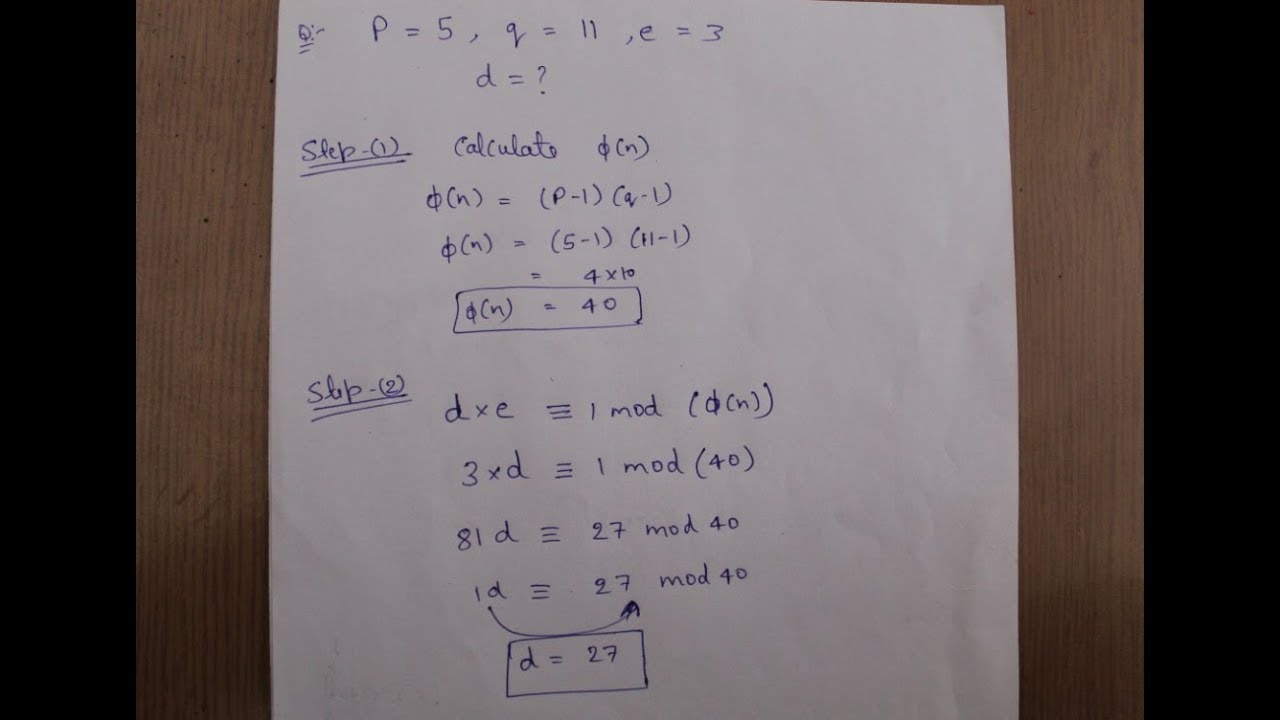 Q:- P = 5, q = 11, e = 3
d = ?
Step-(1) Calculate ϕ(n)
ϕ(n) = (P-1) (q-1)
ϕ(n) = (5-1) (11-1)
= 4×10
ϕ(n) = 40
Step-(2)
d×e ≡ 1 mod (ϕ(n))
3×d ≡ 1 mod (40)
81d ≡ 27 mod 40
1d ≡ 27 mod 40
d = 27